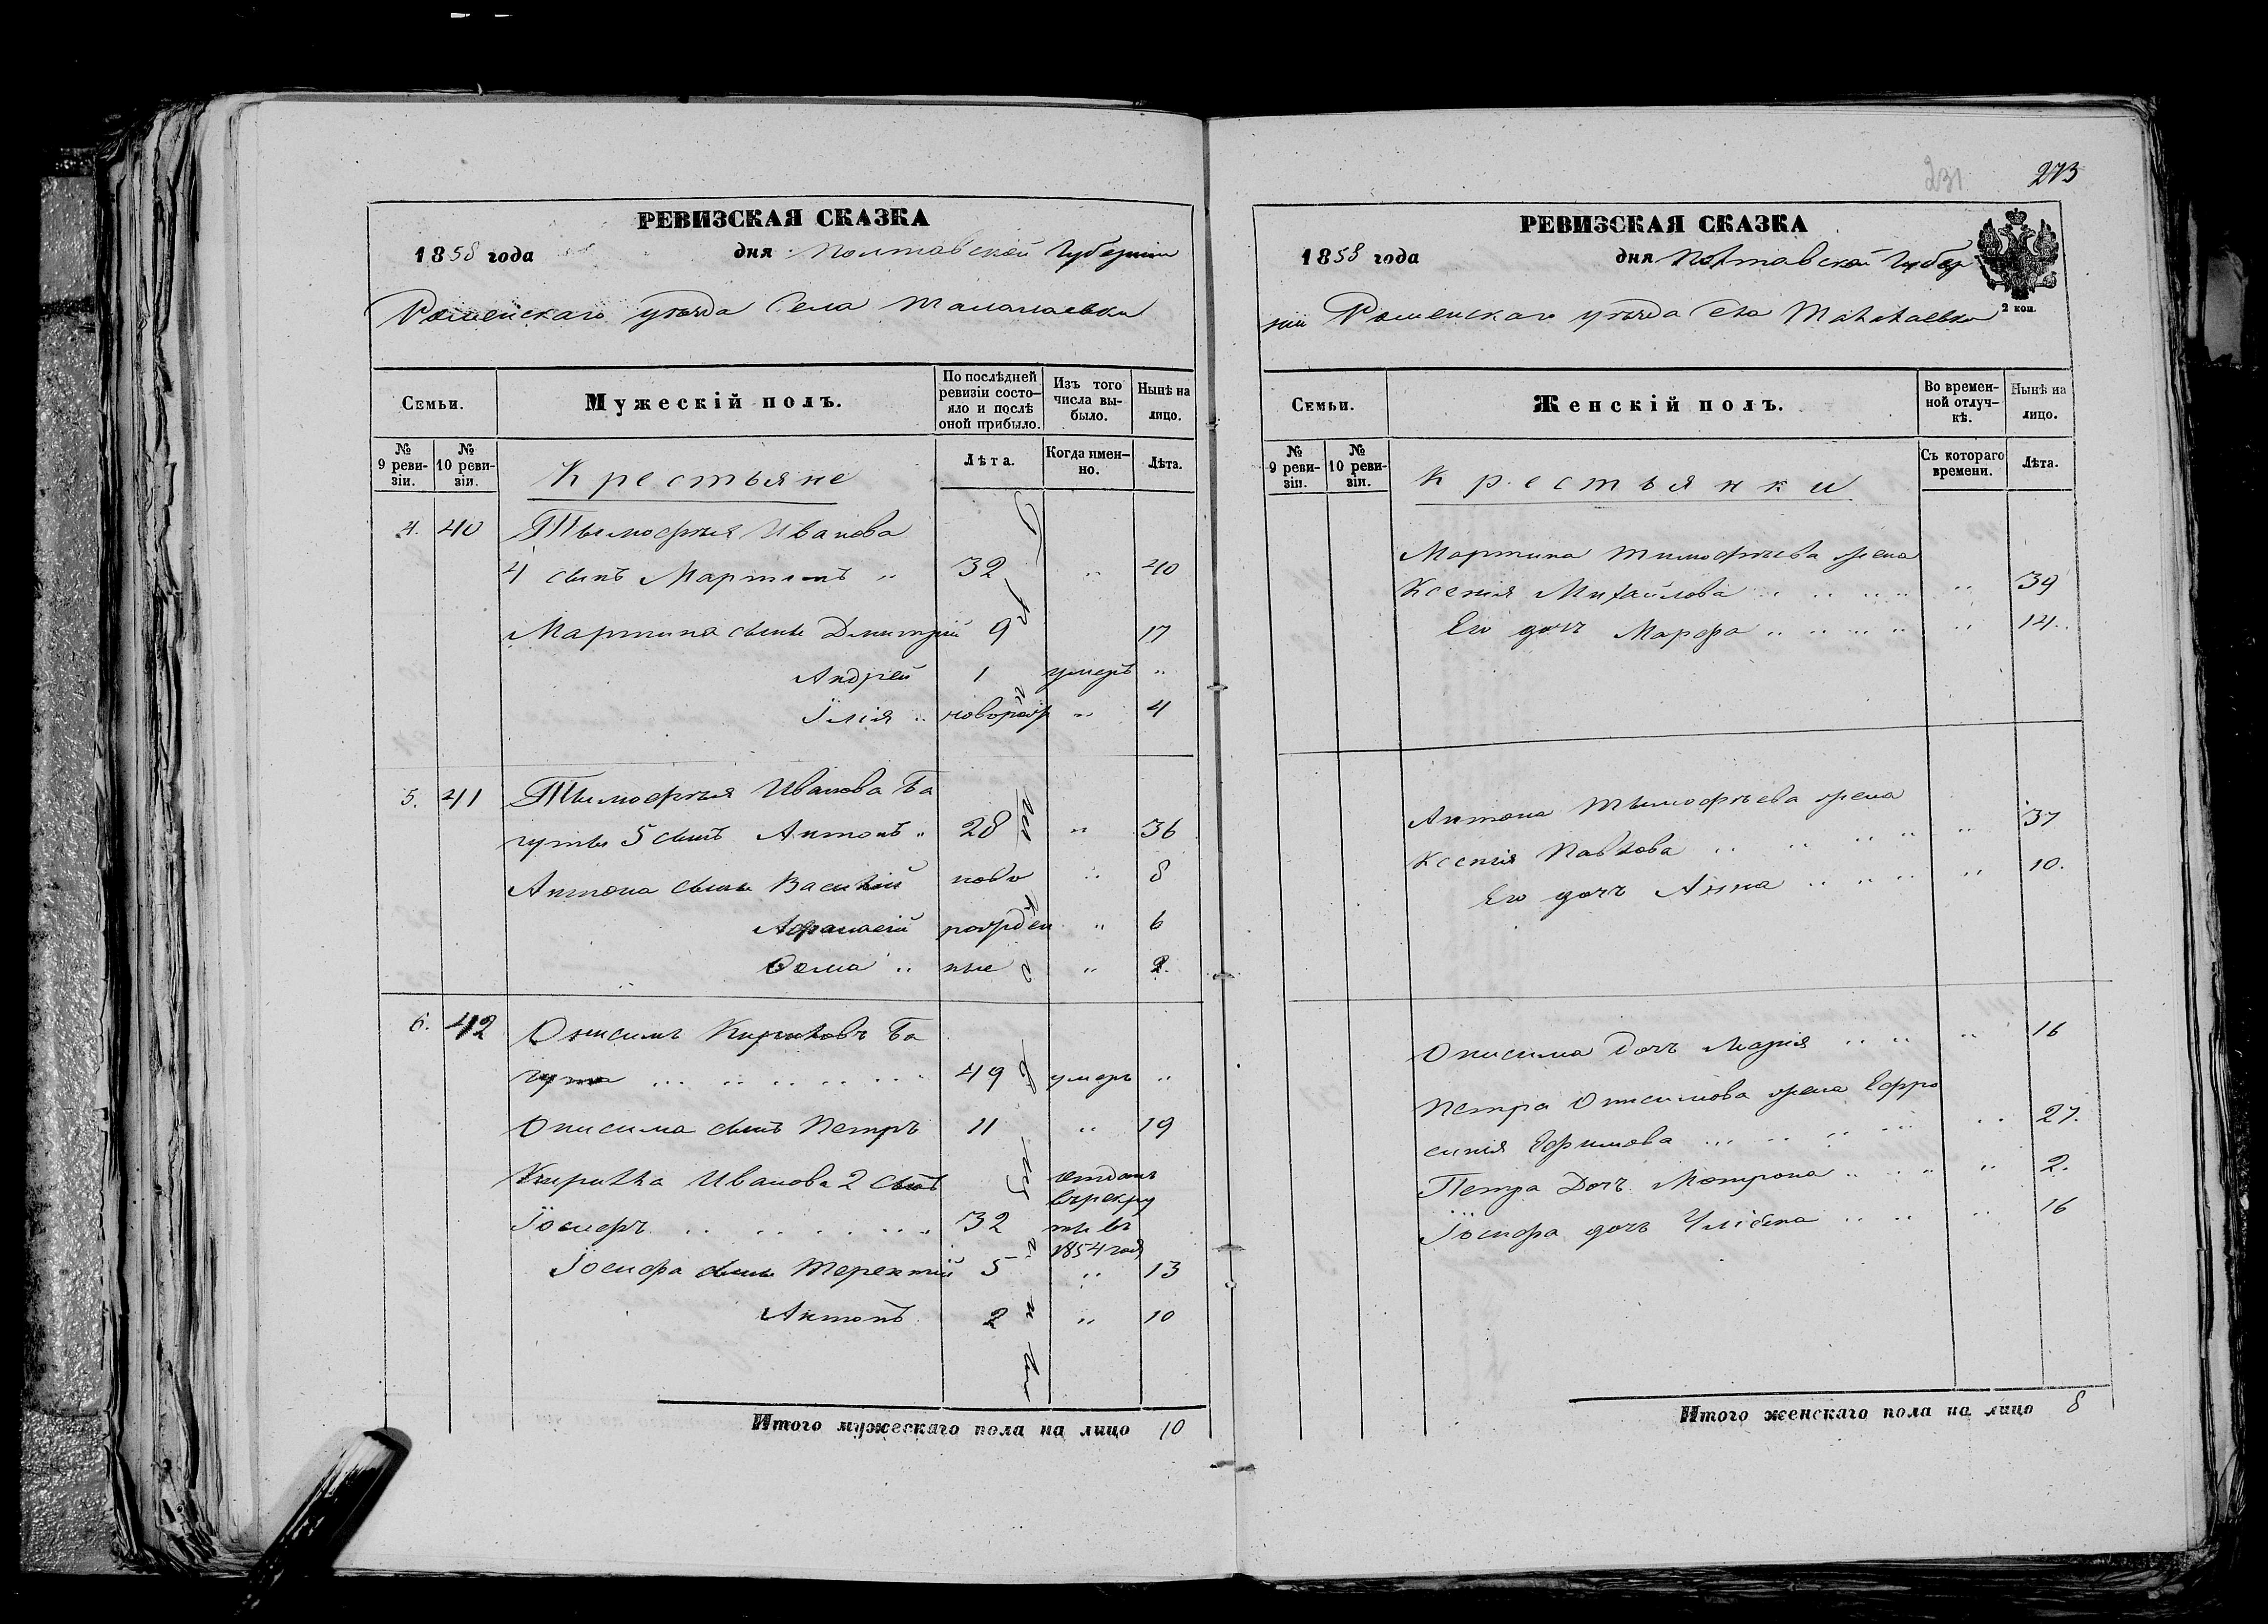 231 273
РЕВИЗСКАЯ СКАЗКА
1858 года дня Полтавской Губернiи
Роменскаго уѣзда Села Талалаевки
Семьи.
Мужескій полъ.
По послѣдней ревизіи состояло и послѣ оной прибыло.
Изъ того числа выбыло.
Нынѣ на лицо.
№ 9 ревизіи.
№ 10 ревизіи.
Крестьяне
Лѣта.
Когда именно.
Лѣта.
4. 40 Тымофѣя Иванова
4 сынъ Мартинъ „ 32 „ 40
Мартина сыны Дмитрій 9 17
Андрей 1 умеръ „
Їлія „ новорожд „ 4
5. 41 Тымофѣя Иванова Ба
гуты 5 сынъ Антонъ „ 28 „ 36
Антона сыны Василій ново „ 8
Афанасій рожден „ 6
Фома „ ные „ 2.
6. 42 Онисимъ Кириловъ Ба
гута 49 умеръ „
Онисима сынъ Петръ 11 „ 19
Кирилла Иванова 2 сынъ отданъ
въ рекру
Їосифъ 32 ты въ
1854 году
Їосифа сыны Терентій 5 „ 13
Антонъ 2 „ 10
Итого мужескаго пола на лицо 10
РЕВИЗСКАЯ СКАЗКА
1858 года дня Полтавской Губер
ніи Роменскаго уѣзда Села Талалаевки
2 коп.
Семьи.
Женскій полъ.
Во временной отлучкѣ.
Нынѣ на лицо.
№ 9 ревизіи.
№ 10 ревизіи.
Крестьянки
Съ котораго времени.
Лѣта.
Мартина Тимофѣева жена
Ксенія Михайлова „ „ „ „ 39
Его дочь Марфа „ „ „ „ „ 14.
Антона Тымофѣева жена
Ксенія Павлова „ „ „ „ „ 37
Его дочь Анна „ „ „ „ 10.
Онисима дочь Марія „ „ „ 16
Петра Онисимова жена Ефро
синія Ефимова „ „ „ „ 27.
Петра Дочь Мотрона „ „ „ „ 2.
Їосифа дочь Улiбена „ „ „ 16
Итого женскаго пола на лицо 8